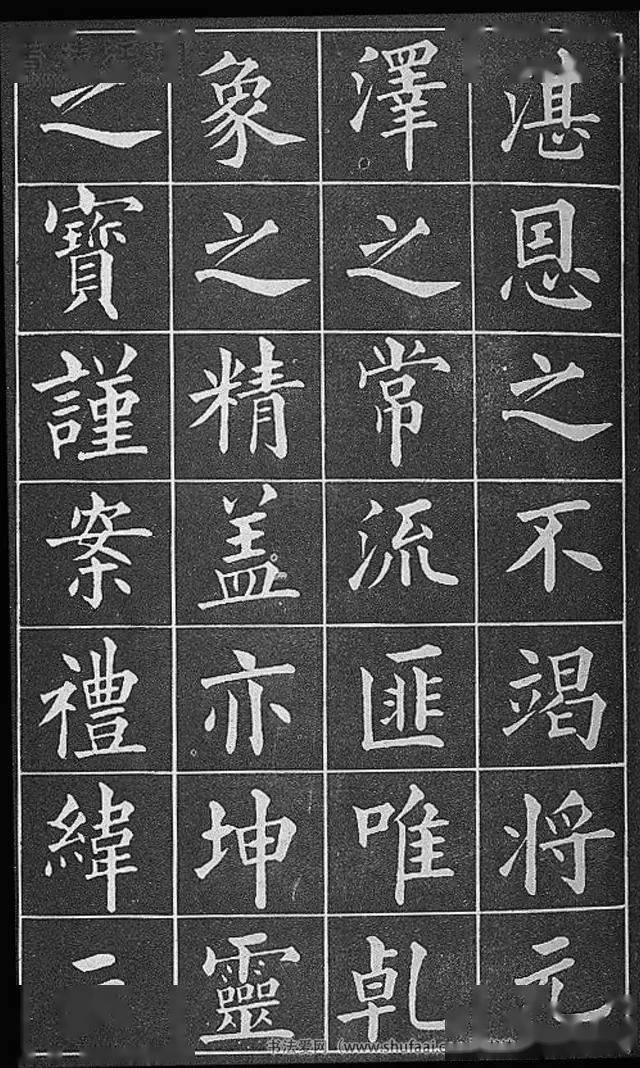 湛恩之不竭将元
澤之常流匪唯乹
象之精盖亦坤靈
之寶謹案禮緯
书法爱网（www.shufaai.